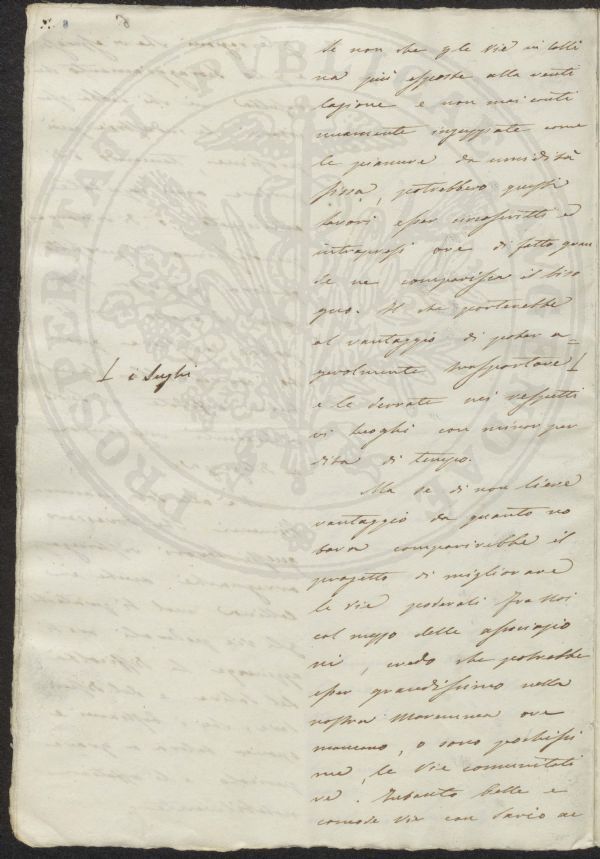 te non che q.le vie in colli
na più esposte alla venti
lazione e non mai conti
nuamente inzuppate come
le pianure da umidità
fissa, potrebbero questi
lavori esser circoscritti e
intrapresi ove di fatto gran
de ne comparisca il biso
gno. Il che porterebbe
al vantaggio di poter a=
gevolmente trasportare
i Sughi
e le derrate nei rispetti
vi luoghi con minor per
dita di tempo.
Ma se di non lieve
vantaggio da quanto no
tava comparirebbe il
progetto di migliorare
le vie poderali fra noi
col mezzo delle associazio
ni, credo che potrebbe
esser grandissimo nella
nostra Maremma ove
mancano, o sono pochissi
me, le vie comunitati
ve. Intanto belle e
comode vie con savio ac
PROSPERITATI PVBLICAE AVGENDAE